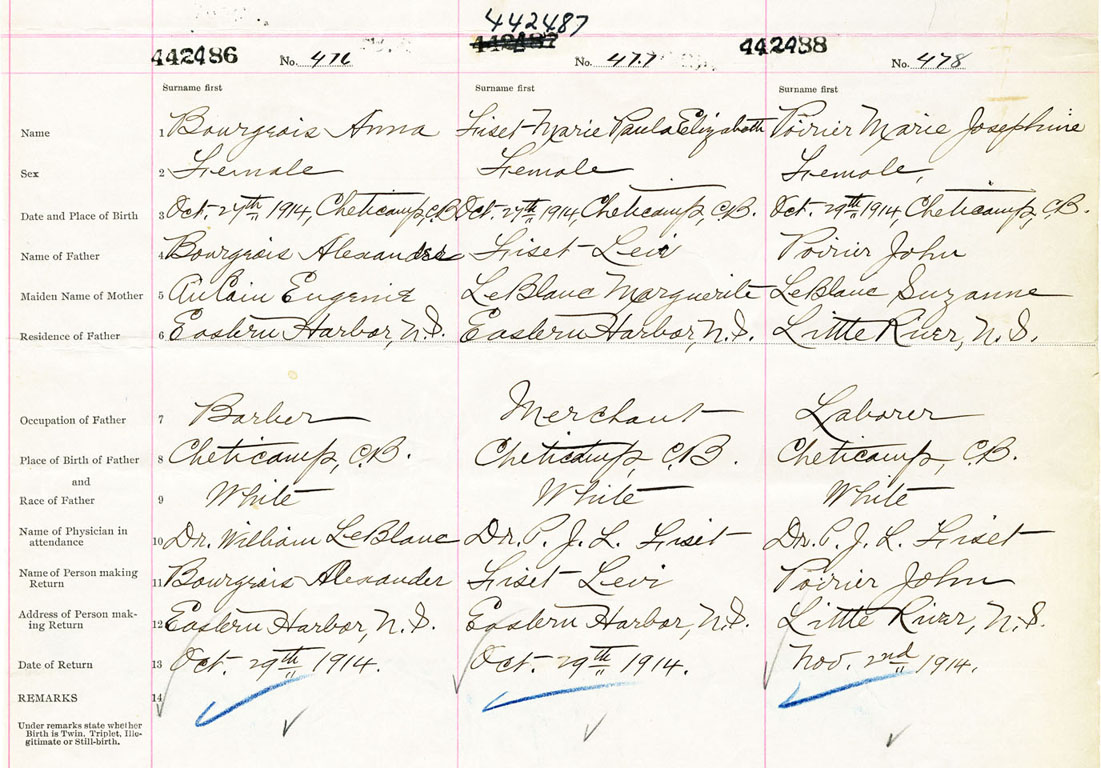 442487
442486 No. 476 442487 No. 477 442488 No. 478
Surname first Surname first Surname first
Name 1 Bourgeois Anna Fiset Marie Paula Elizabeth Poirier Marie Josephine
Sex 2 Female Female Female,
Date and Place of Birth 3 Oct. 27th 1914, Cheticamp, C.B. Oct. 27th 1914, Cheticamp, C.B. Oct. 29th 1914, Cheticamp, C.B.
Name of Father 4 Bourgeois Alexander Fiset Levi Poirier John
Maiden Name of Mother 5 AuCoin Eugenie LeBlanc Marguerite LeBlanc Suzanne
Residence of Father 6 Eastern Harbor, N.S. Eastern Harbor, N.S. Little River, N.S.
Occupation of Father 7 Barber Merchant Laborer
Place of Birth of Father 8 Cheticamp, C.B. Cheticamp, C.B. Cheticamp, C.B.
and
Race of Father 9 White White White
Name of Physician in
attendance 10 Dr. William LeBlanc Dr. P. J. L. Fiset Dr. P. J. L. Fiset
Name of Person making
Return 11 Bourgeois Alexander Fiset Levi Poirier John
Address of Person mak-
ing Return 12 Eastern Harbor, N.S. Eastern Harbor, N.S. Little River, N.S.
Date of Return 13 Oct. 29th 1914. Oct. 29th 1914. Nov. 2nd 1914.
REMARKS 14
Under remarks state whether
Birth is Twin, Triplet, Ille-
gitimate or Still-birth.